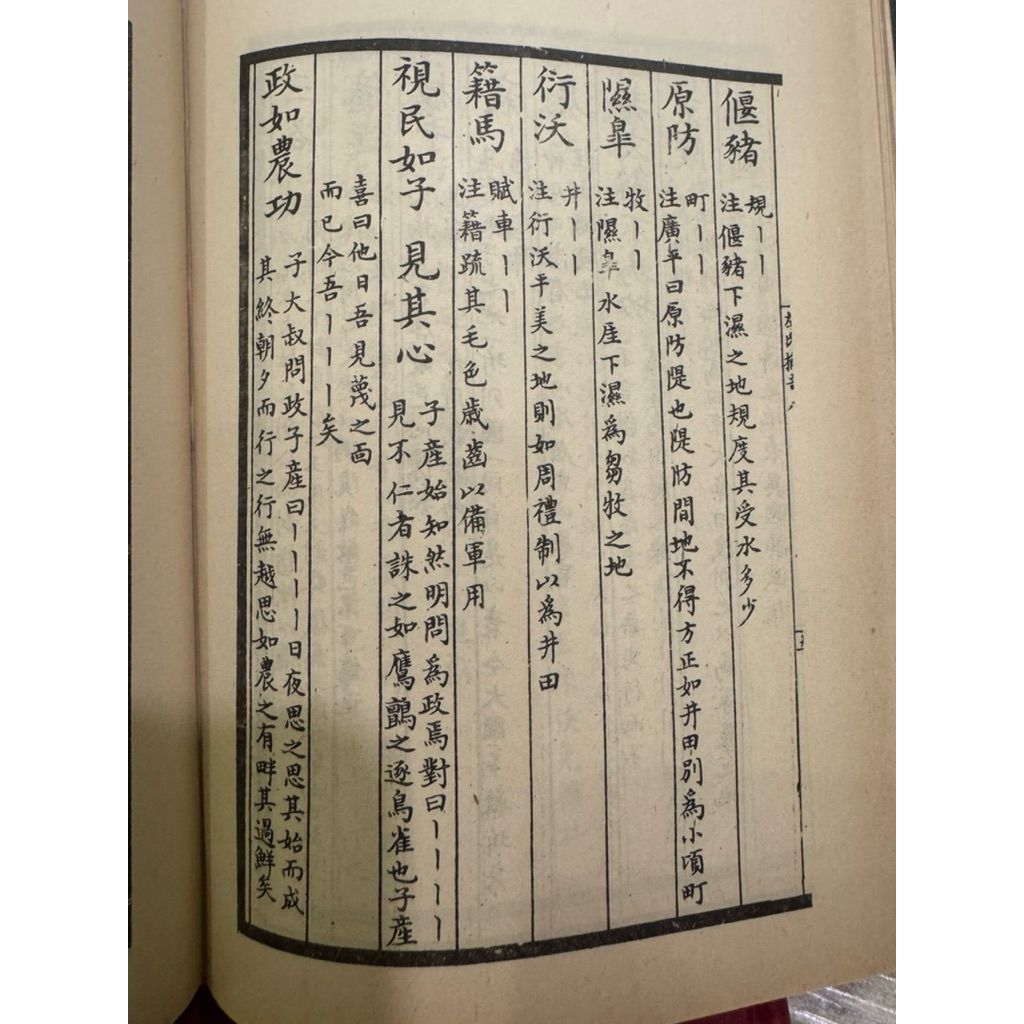 偃豬
規丨丨
注偃豬下濕之地規度其受水多少
原防
町丨丨
注廣平曰原防隄也隄防間地不得方正如井田別為小頃町
隰皐
牧丨丨
注隰皐水厓下濕為芻牧之地
衍沃
井丨丨
注衍沃平美之地則如周禮制以為井田
籍馬
賦車丨丨
注籍疏其毛色歲齒以備軍用
視民如子 見其心
子產始知然明問為政焉對曰丨丨丨丨
見不仁者誅之如鷹鸇之逐鳥雀也子產
喜曰他日吾見蔑之面
而已今吾丨丨丨矣
政如農功
子大叔問政子產曰丨丨丨丨日夜思之思其始而成
其終朝夕而行之行無越思如農之有畔其過鮮矣